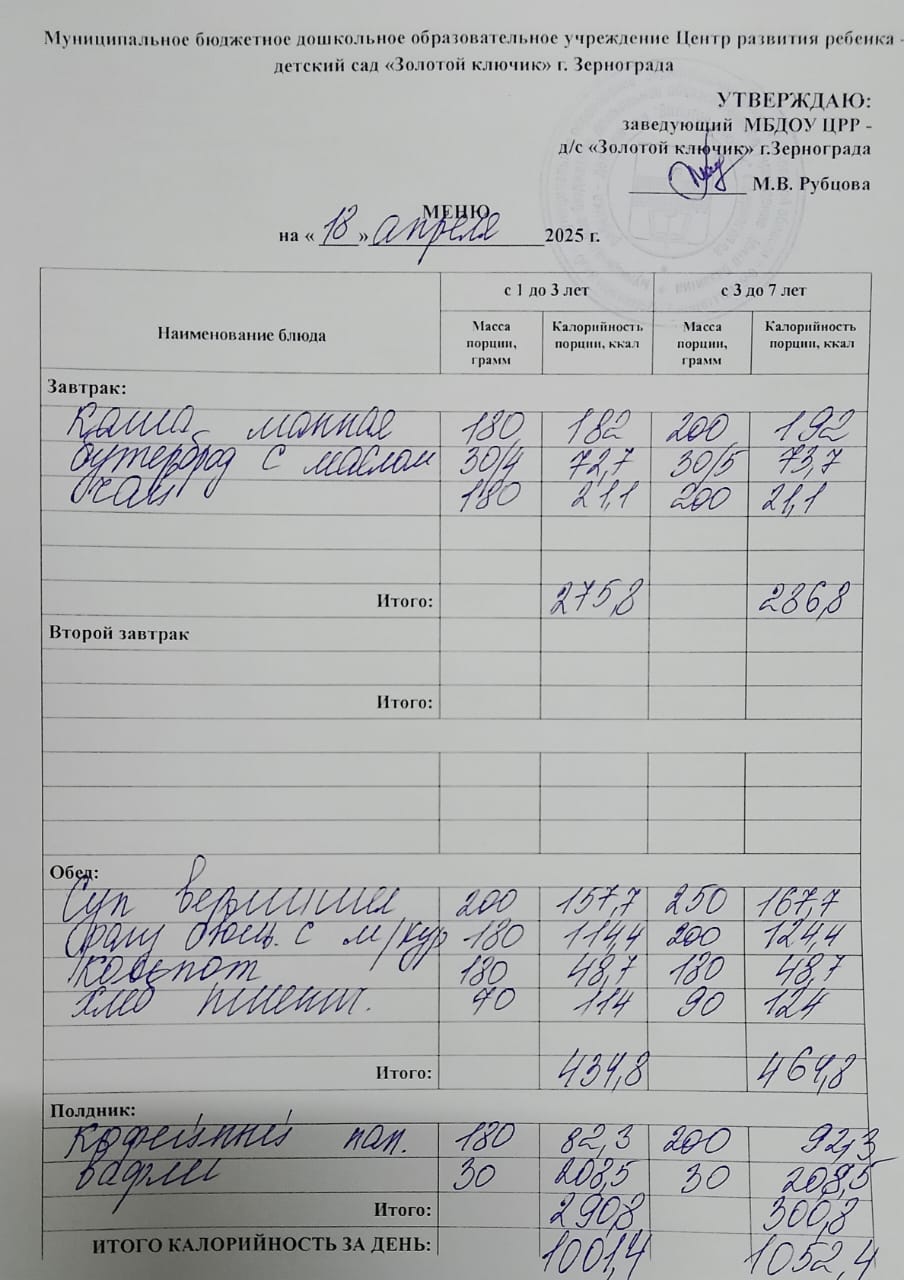 Муниципальное бюджетное дошкольное образовательное учреждение Центр развития ребенка -
детский сад «Золотой ключик» г. Зернограда
УТВЕРЖДАЮ:
заведующий МБДОУ ЦРР -
д/с «Золотой ключик» г.Зернограда
М.В. Рубцова
МЕНЮ
на «18» апреля 2025 г.
Наименование блюда с 1 до 3 лет с 3 до 7 лет
Масса порции, грамм Калорийность порции, ккал Масса порции, грамм Калорийность порции, ккал
Завтрак:
Каша манная 180 182 200 192
бутерброд с маслом 30/4 72,7 30/5 73,7
чай 180 21,1 200 21,1
Итого: 275,8 286,8
Второй завтрак
Итого:
Обед:
Суп вермишел 200 157,7 250 167,7
с м/кур 180 114,4 200 124,4
компот 180 48,7 180 48,7
хлеб пшенич. 70 114 90 124
Итого: 434,8 464,8
Полдник:
Кофейный нап. 180 82,3 200 92,3
вафли 30 208,5 30 208,5
Итого: 290,8 300,8
ИТОГО КАЛОРИЙНОСТЬ ЗА ДЕНЬ: 1001,4 1052,4